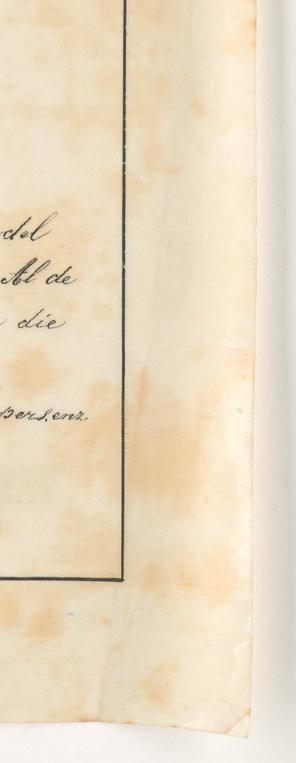 del
Al de
die
pers, enz.